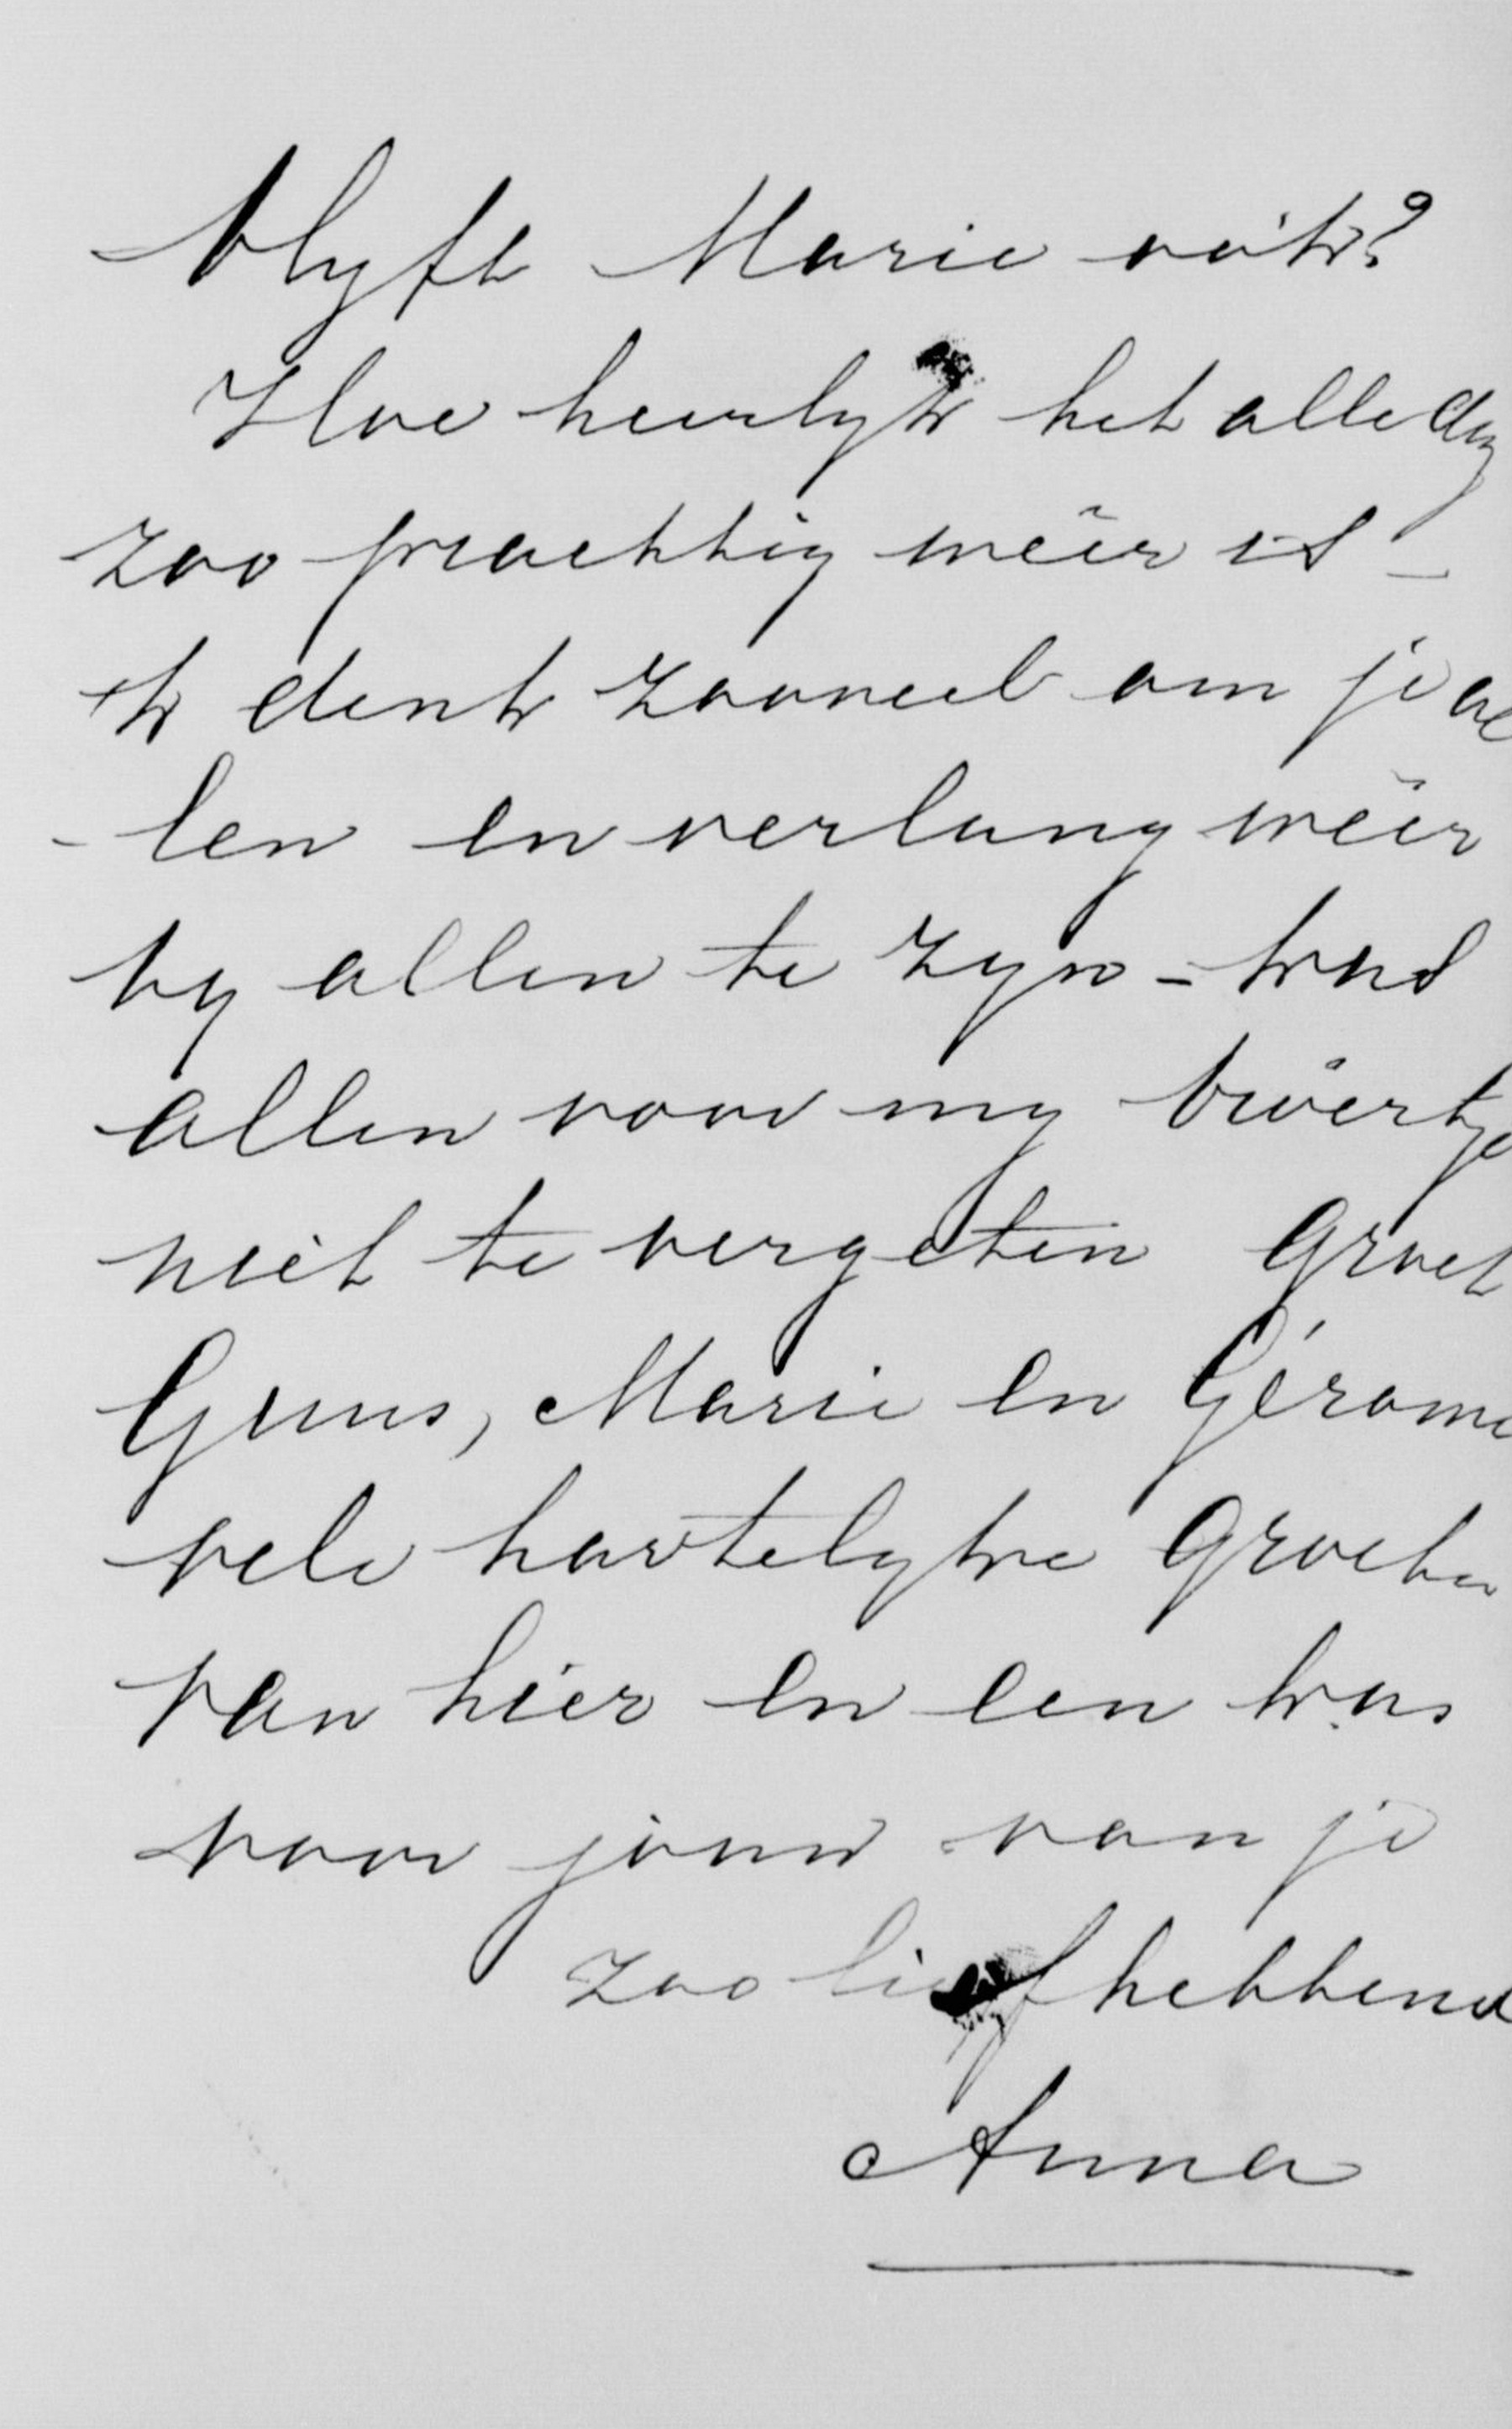 blyft Marie ook?
Hoe heerlyk het alle dag
zoo prachtig wëer is -
ik denk zooveel om je al
- len en verlang wëer
by allen te zyn - kus
allen voor my broertje
niet te vergeten Groet
Guus, Marie en Gérome
vele hartelyke Groeten
van hier en een kus
voor jouw van je
zoo liefhebbend
Anna